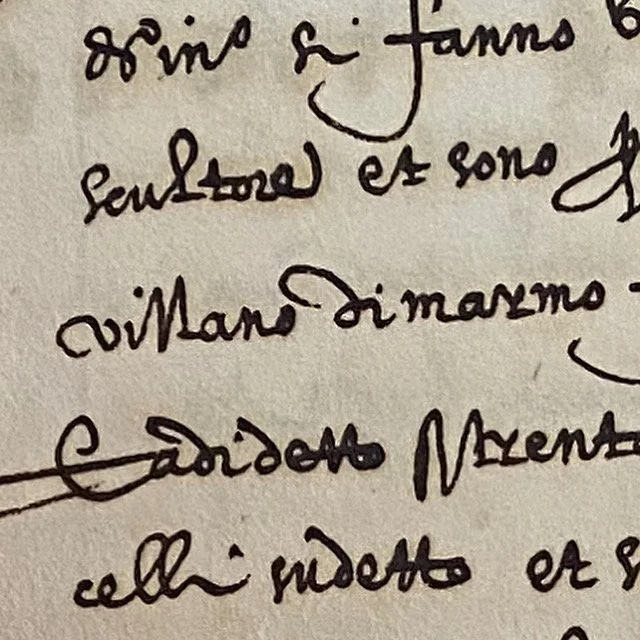 si fanno
scultore et sono
villano di marmo
Cadidetto
celli sudetto et s